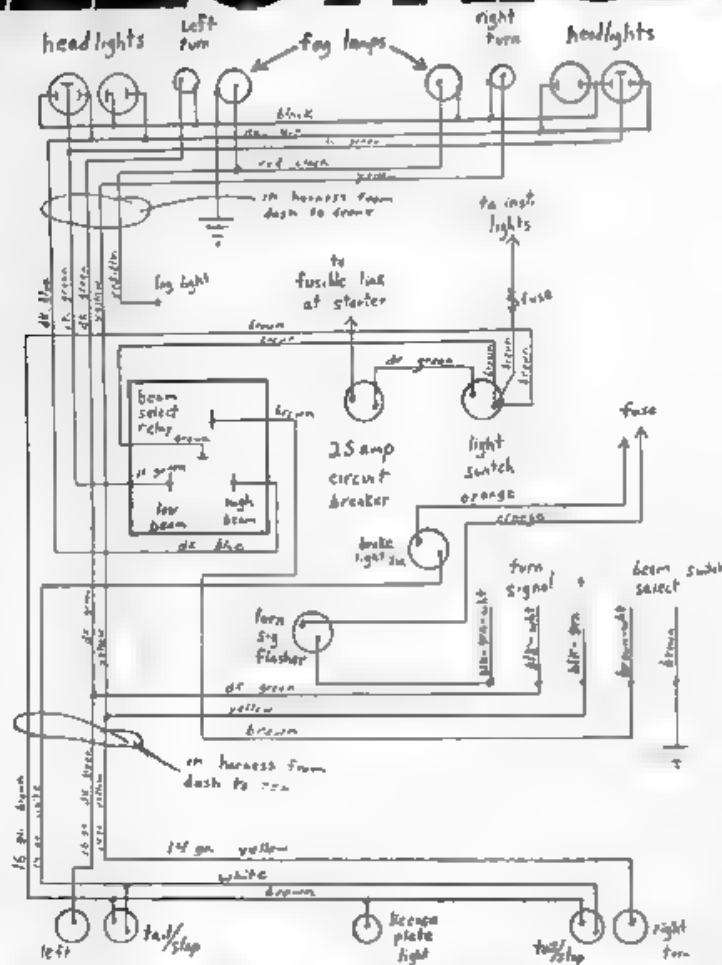 headlights
Left
turn
fog lamps
right
turn
headlights
black
green
red
in harness from
dash to front
to inst
lights
fog light
to
fusible link
at starter
fuse
dk blue
green
dk green
yellow
brown
brown
dk green
brown
brown
brown
beam
select
relay
brown
brown
green
low
beam
high
beam
25 amp
circuit
breaker
light
switch
fuse
orange
orange
dk blue
brake
light sw
turn
signal
beam switch
select
turn
sig
flasher
blk-grn-wht
blk-wht
blk-grn
brown-wht
brown
dk green
yellow
dk green
yellow
brown
in harness from
dash to
16 ga brown
14 ga white
16 ga dk green
yellow
yellow
white
brown
left
tail/stop
license
plate
light
tail/stop
right
turn